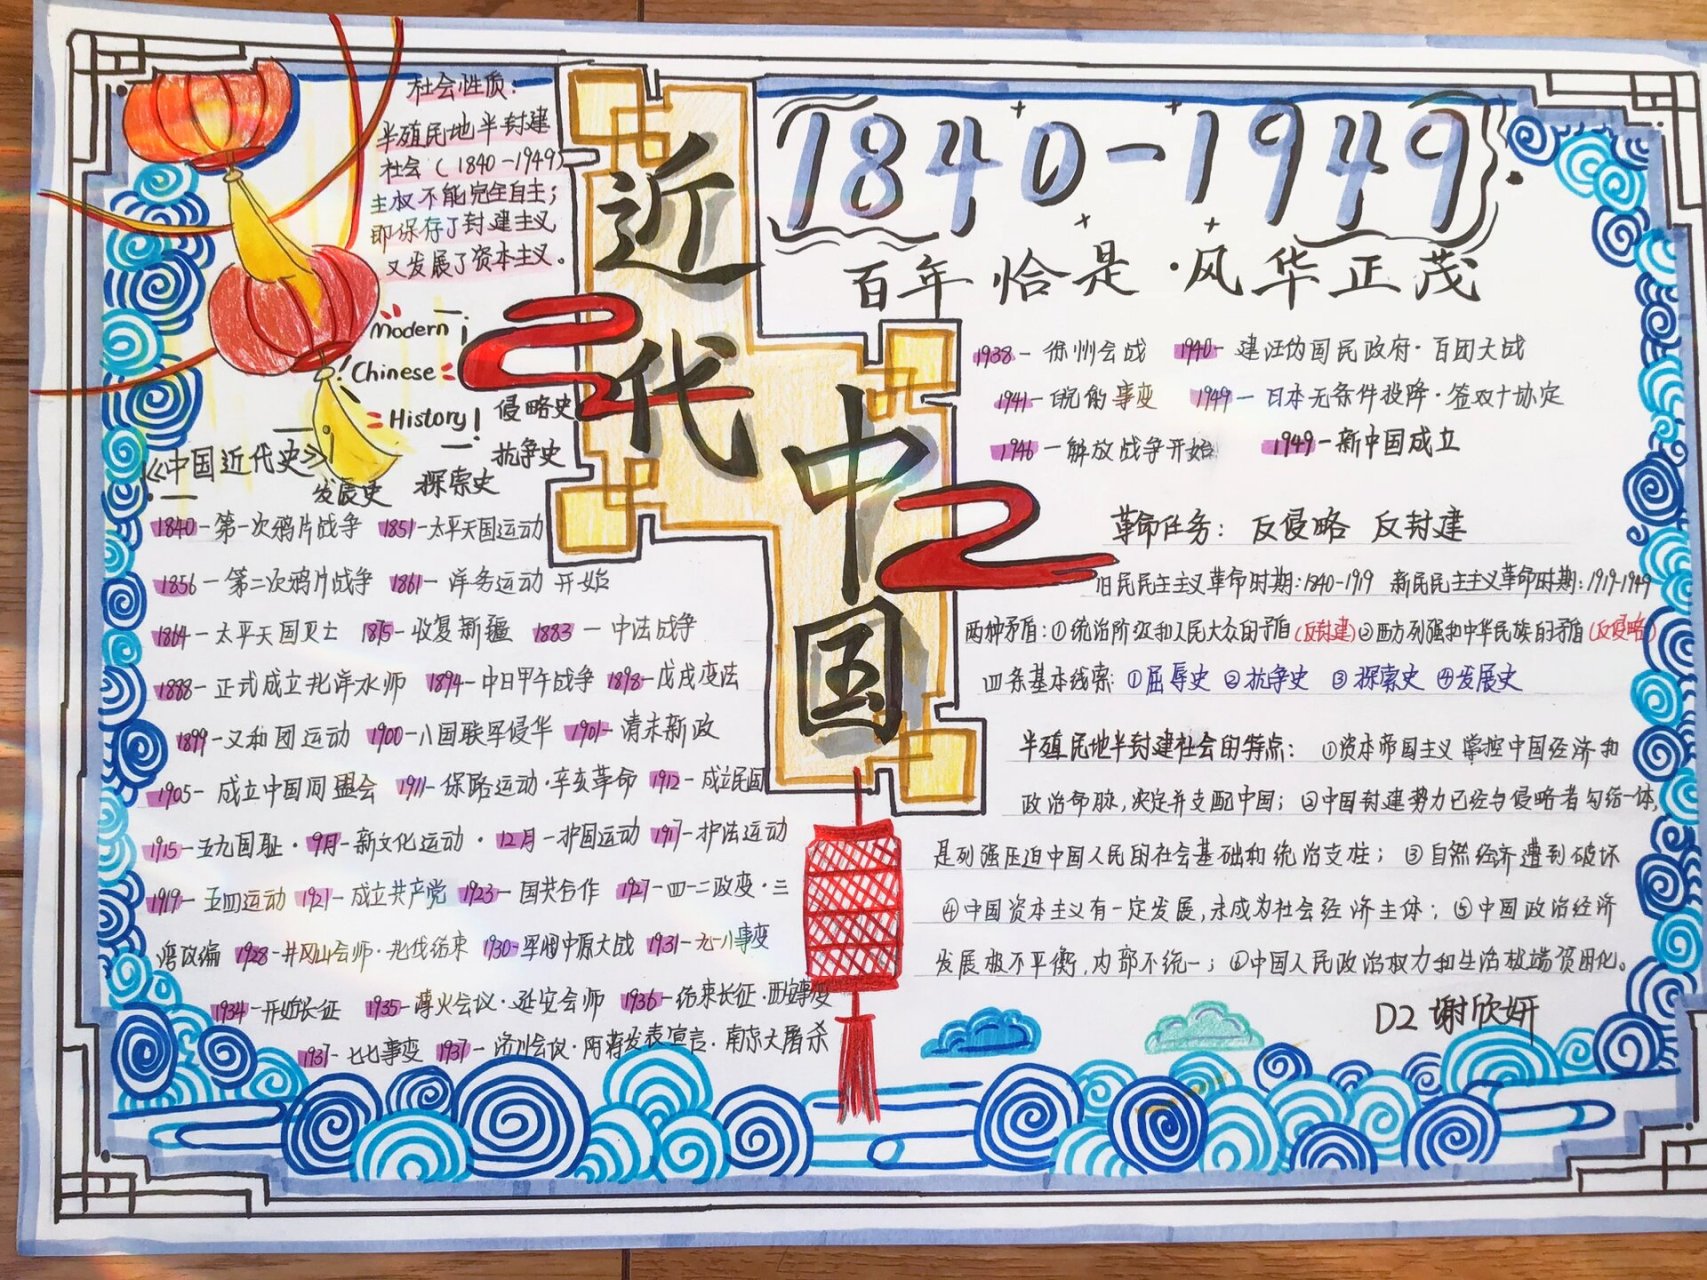 社会性质：
半殖民地半封建
社会（1840-1949）
主权不能完全自主；
即保存了封建主义
又发展了资本主义。
Modern
Chinese
History!
侵略史
抗争史
探索史
发展史
《中国近代史》
近代
中国
1840-1949
百年恰是·风华正茂
1840-第一次鸦片战争 1851-太平天国运动
1856-第二次鸦片战争 1861-洋务运动开始
1864-太平天国灭亡 1875-收复新疆 1883-中法战争
1888-正式成立北洋水师 1894-中日甲午战争 1898-戊戌变法
1899-义和团运动 1900-八国联军侵华 1901-清末新政
1905-成立中国同盟会 1911-保路运动·辛亥革命 1912-成立民国
1915-五九国耻·9月-新文化运动·12月-护国运动 1917-护法运动
1919-五四运动 1921-成立共产党 1923-国共合作 1927-四一二政变·三
湾改编 1928-井冈山会师·北伐结束 1930-军阀中原大战 1931-九一八事变
1934-开始长征 1935-遵义会议·延安会师 1936-结束长征·西安事变
1937-七七事变 1937-洛川会议·两蒋发表宣言·南京大屠杀
1938-徐州会战 1940-建汪伪国民政府·百团大战
1941-皖南事变 1949-日本无条件投降·签双十协定
1946-解放战争开始 1949-新中国成立
革命任务：反侵略 反封建
旧民民主主义革命时期：1840-1919 新民民主主义革命时期：1919-1949
两种矛盾：①统治阶级和人民大众的矛盾（反封建）②西方列强和中华民族的矛盾（反侵略）
四条基本线索：①屈辱史 ②抗争史 ③探索史 ④发展史
半殖民地半封建社会的特点：①资本帝国主义掌控中国经济和
政治命脉，决定并支配中国；②中国封建势力已经与侵略者勾结一体，
是列强压迫中国人民的社会基础和统治支柱；③自然经济遭到破坏
④中国资本主义有一定发展，未成为社会经济主体；⑤中国政治经济
发展极不平衡，内部不统一；⑥中国人民政治权力和生活极端贫困化。
D2 谢欣妍